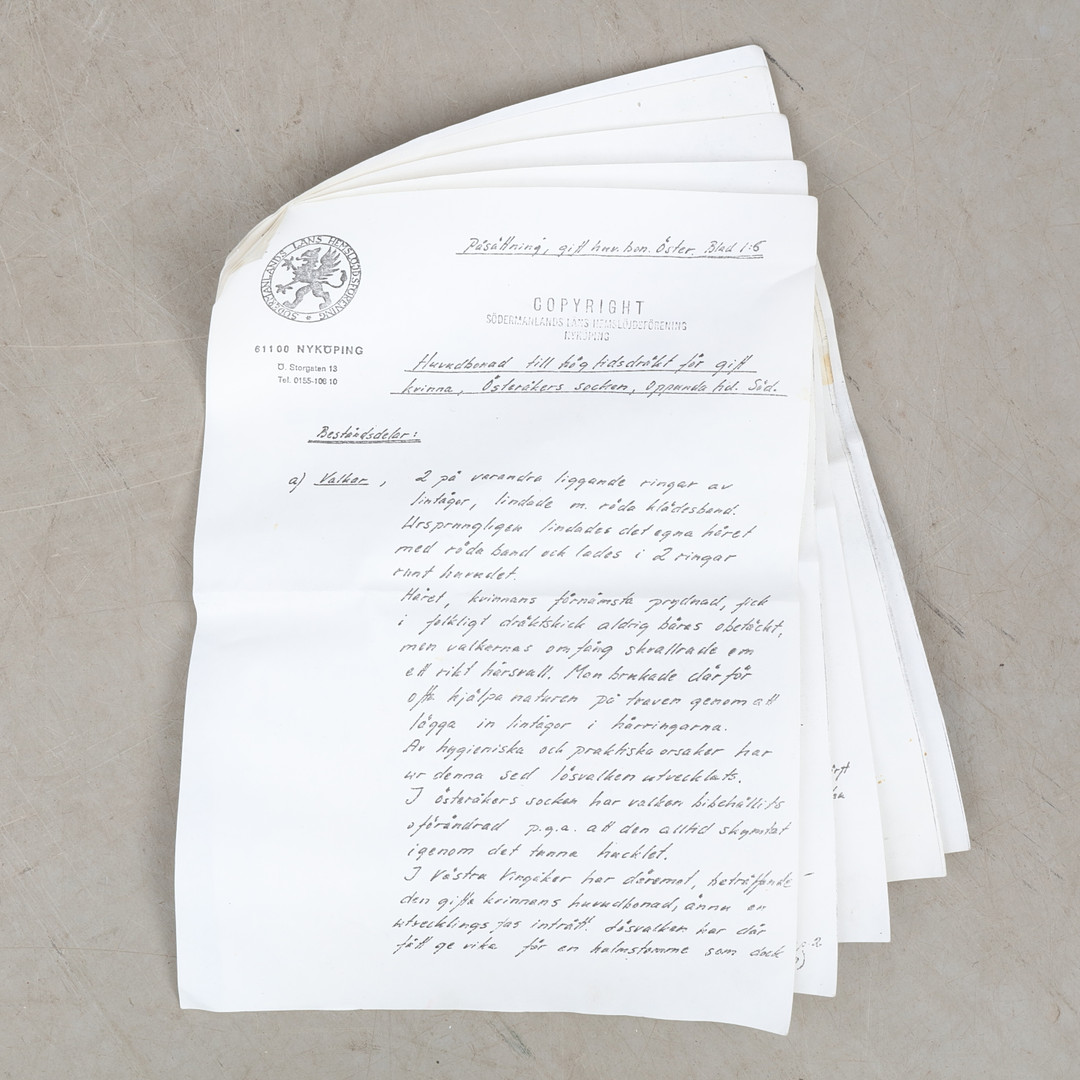 Påsättning, gift huv.bon. Öster. Blad 1:6
SÖDERMANLANDS LÄNS HEMSLÖJDSFÖRENING
COPYRIGHT
SÖDERMANLANDS LÄNS HEMSLÖJDSFÖRENING
NYKÖPING
61100 NYKÖPING
Ö. Storgatan 13
Tel. 0155-100 10
Huvudbonad till högtidsdräkt för gift
kvinna, Österåkers socken, Oppunda hd. Söd.
Beståndsdelar:
a) Valkar, 2 på varandra liggande ringar av
lintågor, lindade m. röda klädesband.
Ursprungligen lindades det egna håret
med röda band och lades i 2 ringar
runt huvudet.
Håret, kvinnans förnämsta prydnad, fick
i folkligt dräktskick aldrig bäras obetäckt,
men valkarnas omfång skvallrade om
ett rikt hårsvall. Man brukade därför
ofta hjälpa naturen på traven genom att
lägga in lintågor i hårringarna.
Av hygieniska och praktiska orsaker har
ur denna sed lösvalken utvecklats.
I Österåkers socken har valken bibehållits
oförändrad p.g.a. att den alltid skymtat
igenom det tunna hucklet.
I Västra Vingåker har däremot, beträffande
den gifta kvinnans huvudbonad, ännu en
utvecklingsfas inträtt. Lösvalken har där
fått ge vika för en halmstomme som dock
2